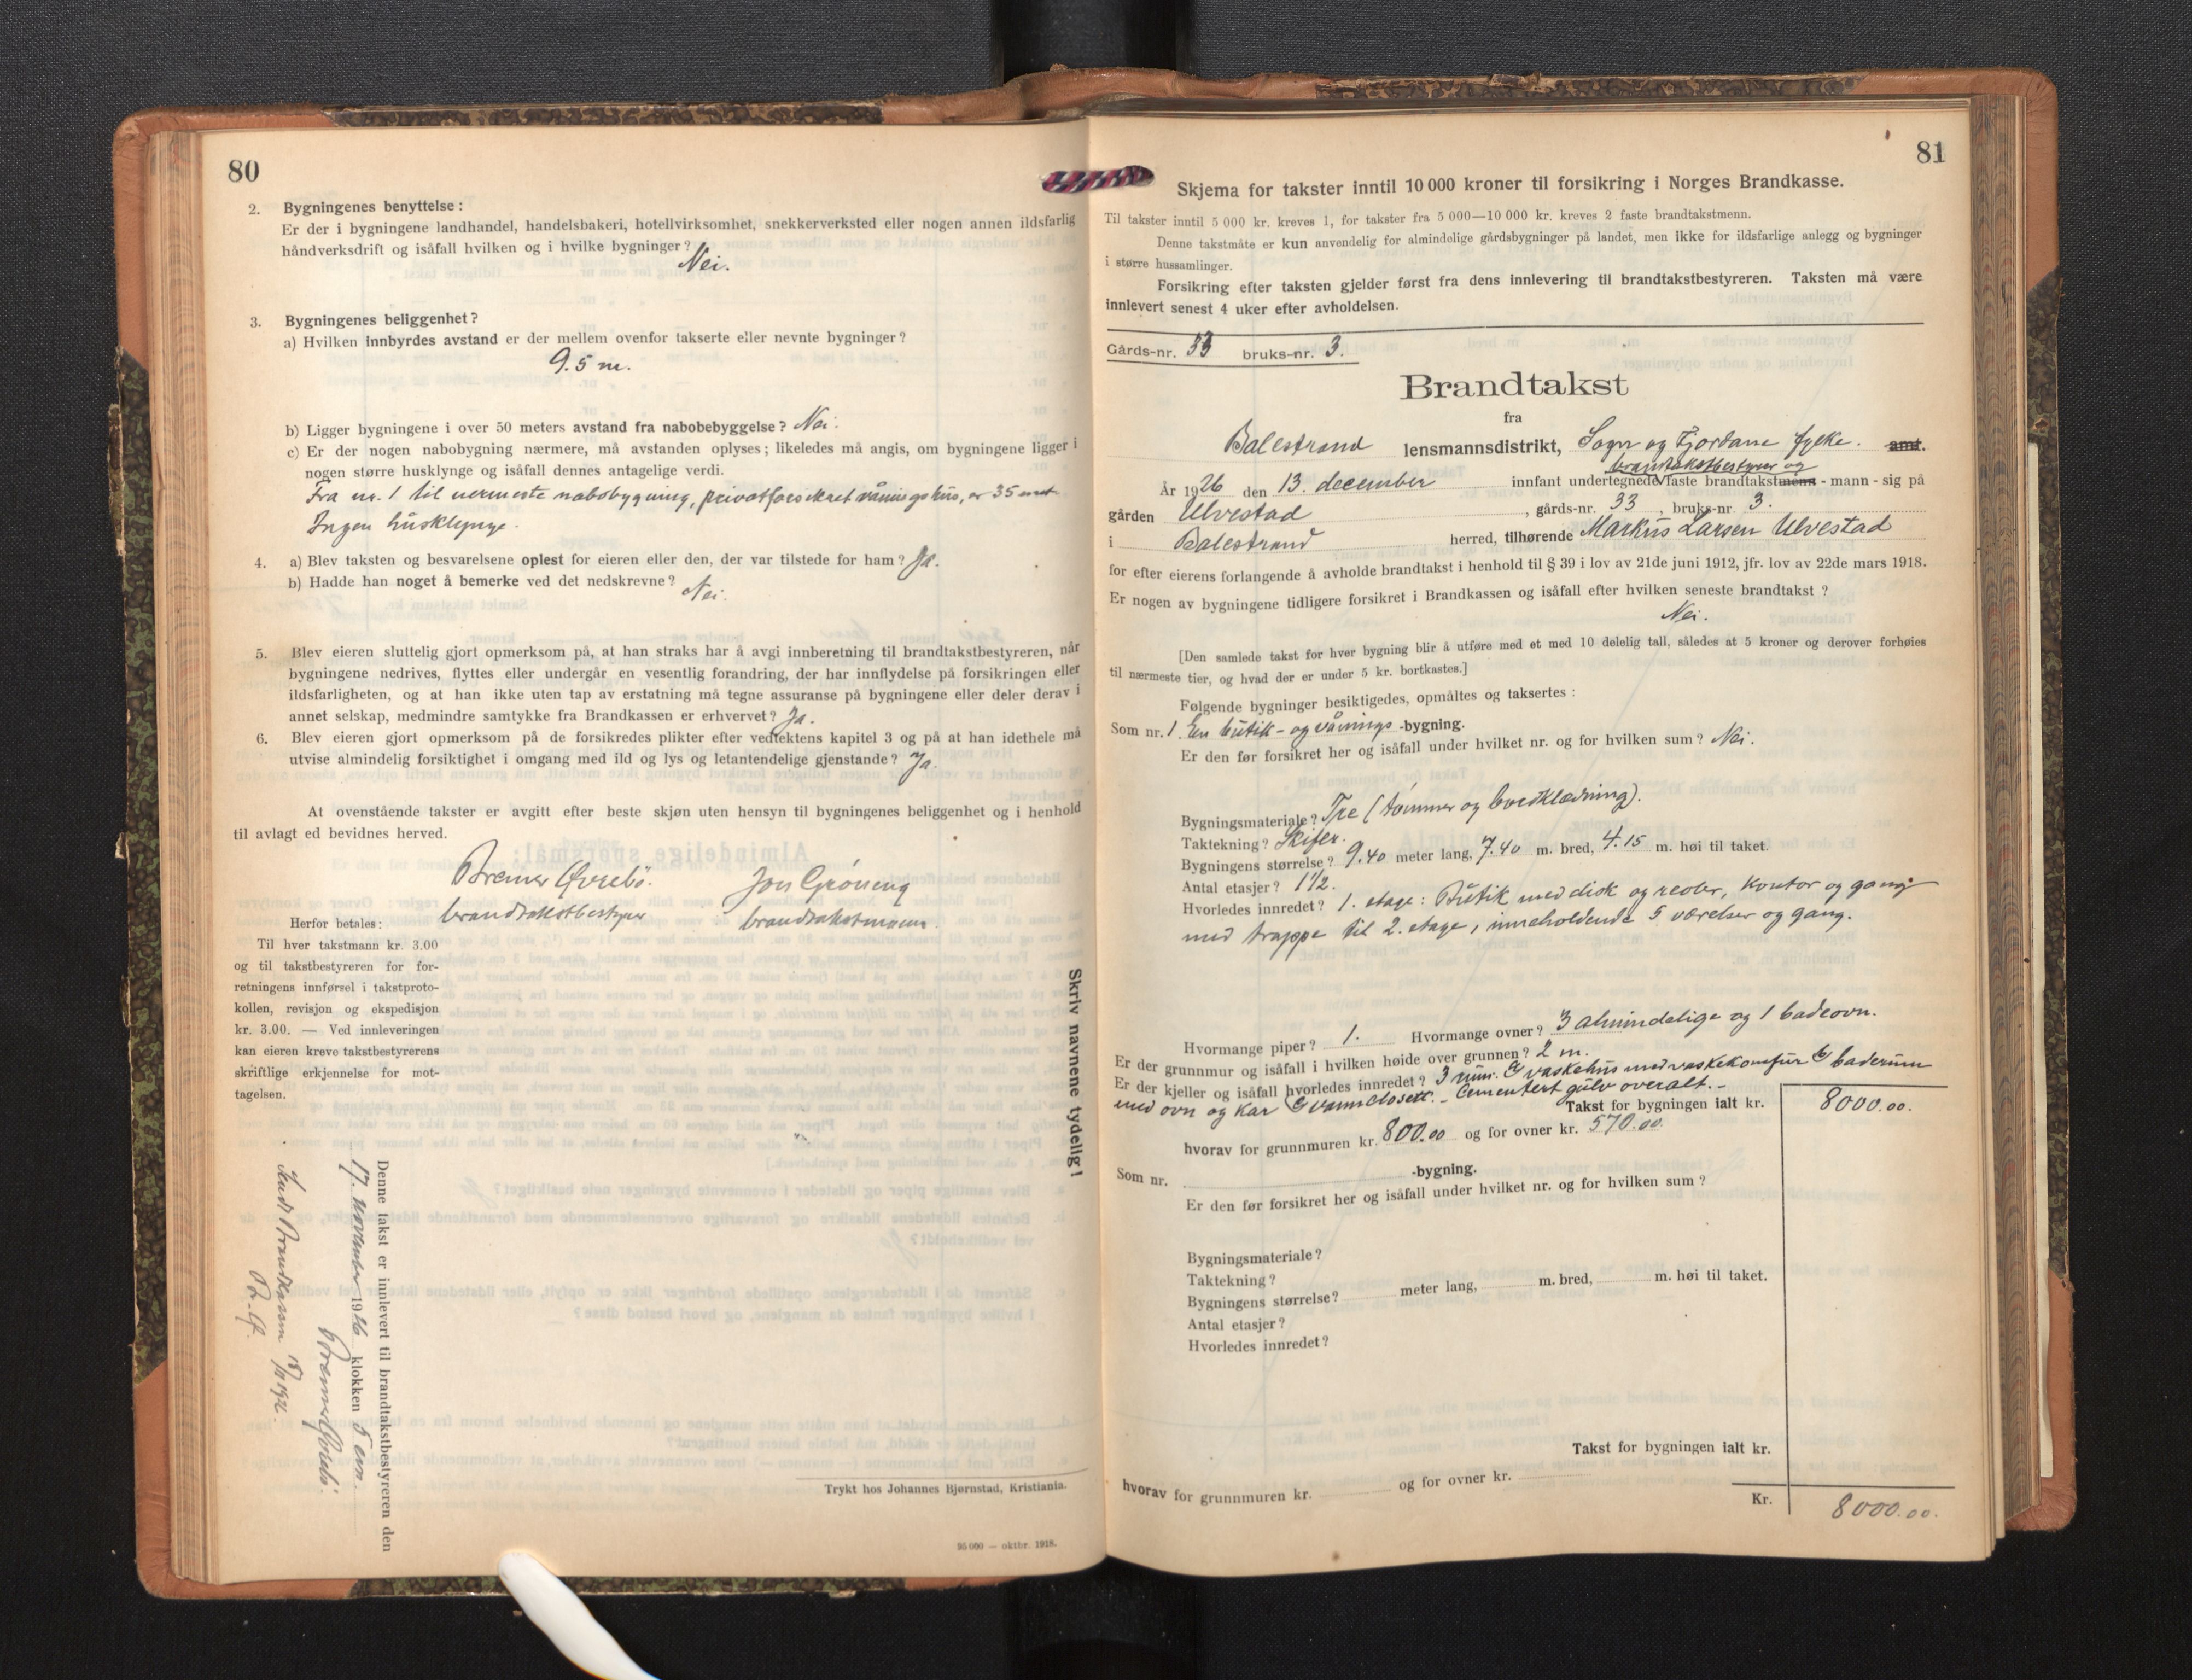 80
2. Bygningenes benyttelse:
Er der i bygningene landhandel, handelsbakeri, hotellvirksomhet, snekkerverksted eller nogen annen ildsfarlig
håndverksdrift og isåfall hvilken og i hvilke bygninger?
Nei.
3. Bygningenes beliggenhet?
a) Hvilken innbyrdes avstand er der mellem ovenfor takserte eller nevnte bygninger?
9.5 m.
b) Ligger bygningene i over 50 meters avstand fra nabobebyggelse? Nei.
c) Er der nogen nabobygning nærmere, må avstanden oplyses; likeledes må angis, om bygningene ligger i
nogen større husklynge og isåfall dennes antagelige verdi.
Fra nr. 1 til nermeste nabobygning, privatforsikret våningshus, er 35 met.
Ingen husklynge.
4. a) Blev taksten og besvarelsene oplest for eieren eller den, der var tilstede for ham? Ja.
b) Hadde han noget å bemerke ved det nedskrevne?
Nei.
5. Blev eieren sluttelig gjort opmerksom på, at han straks har å avgi innberetning til brandtakstbestyreren, når
bygningene nedrives, flyttes eller undergår en vesentlig forandring, der har innflydelse på forsikringen eller
ildsfarligheten, og at han ikke uten tap av erstatning må tegne assuranse på bygningene eller deler derav i
annet selskap, medmindre samtykke fra Brandkassen er erhvervet? Ja.
6. Blev eieren gjort opmerksom på de forsikredes plikter efter vedtektens kapitel 3 og på at han idethele må
utvise almindelig forsiktighet i omgang med ild og lys og letantendelige gjenstande? Ja.
At ovenstående takster er avgitt efter beste skjøn uten hensyn til bygningenes beliggenhet og i henhold
til avlagt ed bevidnes herved.
Bremer Øvrebø. Jon Grøneng
brandtakstbestyrer brandtakstmann.
Herfor betales:
Til hver takstmann kr. 3.00
og til takstbestyreren for for-
retningens innførsel i takstproto-
kollen, revisjon og ekspedisjon
kr. 3.00. — Ved innleveringen
kan eieren kreve takstbestyrerens
skriftlige erkjennelse for mot-
tagelsen.
Skriv navnene tydelig!
Denne takst er innlevert til brandtakstbestyreren den
17. november 1926 klokken 5 em.
Bremer Øvrebø.
Sendt Brandkassen
Trykt hos Johannes Bjørnstad, Kristiania.
95 000 — oktbr. 1918.
81
Skjema for takster inntil 10 000 kroner til forsikring i Norges Brandkasse.
Til takster inntil 5 000 kr. kreves 1, for takster fra 5 000—10 000 kr. kreves 2 faste brandtakstmenn.
Denne takstmåte er kun anvendelig for almindelige gårdsbygninger på landet, men ikke for ildsfarlige anlegg og bygninger
i større hussamlinger.
Forsikring efter taksten gjelder først fra dens innlevering til brandtakstbestyreren. Taksten må være
innlevert senest 4 uker efter avholdelsen.
Gårds-nr. 33 bruks-nr. 3.
Brandtakst
fra
Balestrand lensmannsdistrikt, Sogn og Fjordane fylke. amt.
brandtakstbestyrer og
År 1926 den 13. december innfant undertegnede faste brandtakstmenn - mann - sig på
gården Ulvestad, gårds-nr. 33, bruks-nr. 3.
i Balestrand herred, tilhørende Markus Larsen Ulvestad
for efter eierens forlangende å avholde brandtakst i henhold til § 39 i lov av 21de juni 1912, jfr. lov av 22de mars 1918.
Er nogen av bygningene tidligere forsikret i Brandkassen og isåfall efter hvilken seneste brandtakst?
Nei.
[Den samlede takst for hver bygning blir å utføre med et med 10 delelig tall, således at 5 kroner og derover forhøies
til nærmeste tier, og hvad der er under 5 kr. bortkastes.]
Følgende bygninger besiktigedes, opmåltes og taksertes:
Som nr. 1. En butik- og vånings -bygning.
Er den før forsikret her og isåfall under hvilket nr. og for hvilken sum? Nei.
Bygningsmateriale? Tre (tømmer og bordklædning).
Taktekning? Skifer.
Bygningens størrelse? 9.40 meter lang, 7.40 m. bred, 4.15 m. høi til taket.
Antal etasjer? 1½.
Hvorledes innredet? 1. etage: Butik med disk og reoler, kontor og gang
med trappe til 2. etage, inneholdende 5 værelser og gang.
Hvormange piper? 1. Hvormange ovner? 3 almindelige og 1 badeovn.
Er der grunnmur og isåfall i hvilken høide over grunnen? 2 m.
Er der kjeller og isåfall hvorledes innredet? 3 rum. vaskehus med vaskekomfur baderum
med ovn og kar vannclosett. - Cementert gulv overalt. -
Takst for bygningen ialt kr. 8000.00.
hvorav for grunnmuren kr. 800.00 og for ovner kr. 570.00.
Som nr. -bygning.
Er den før forsikret her og isåfall under hvilket nr. og for hvilken sum?
Bygningsmateriale?
Taktekning?
Bygningens størrelse? meter lang, m. bred, m. høi til taket.
Antal etasjer?
Hvorledes innredet?
Takst for bygningen ialt kr.
hvorav for grunnmuren kr. og for ovner kr.
Kr. 8000.00.